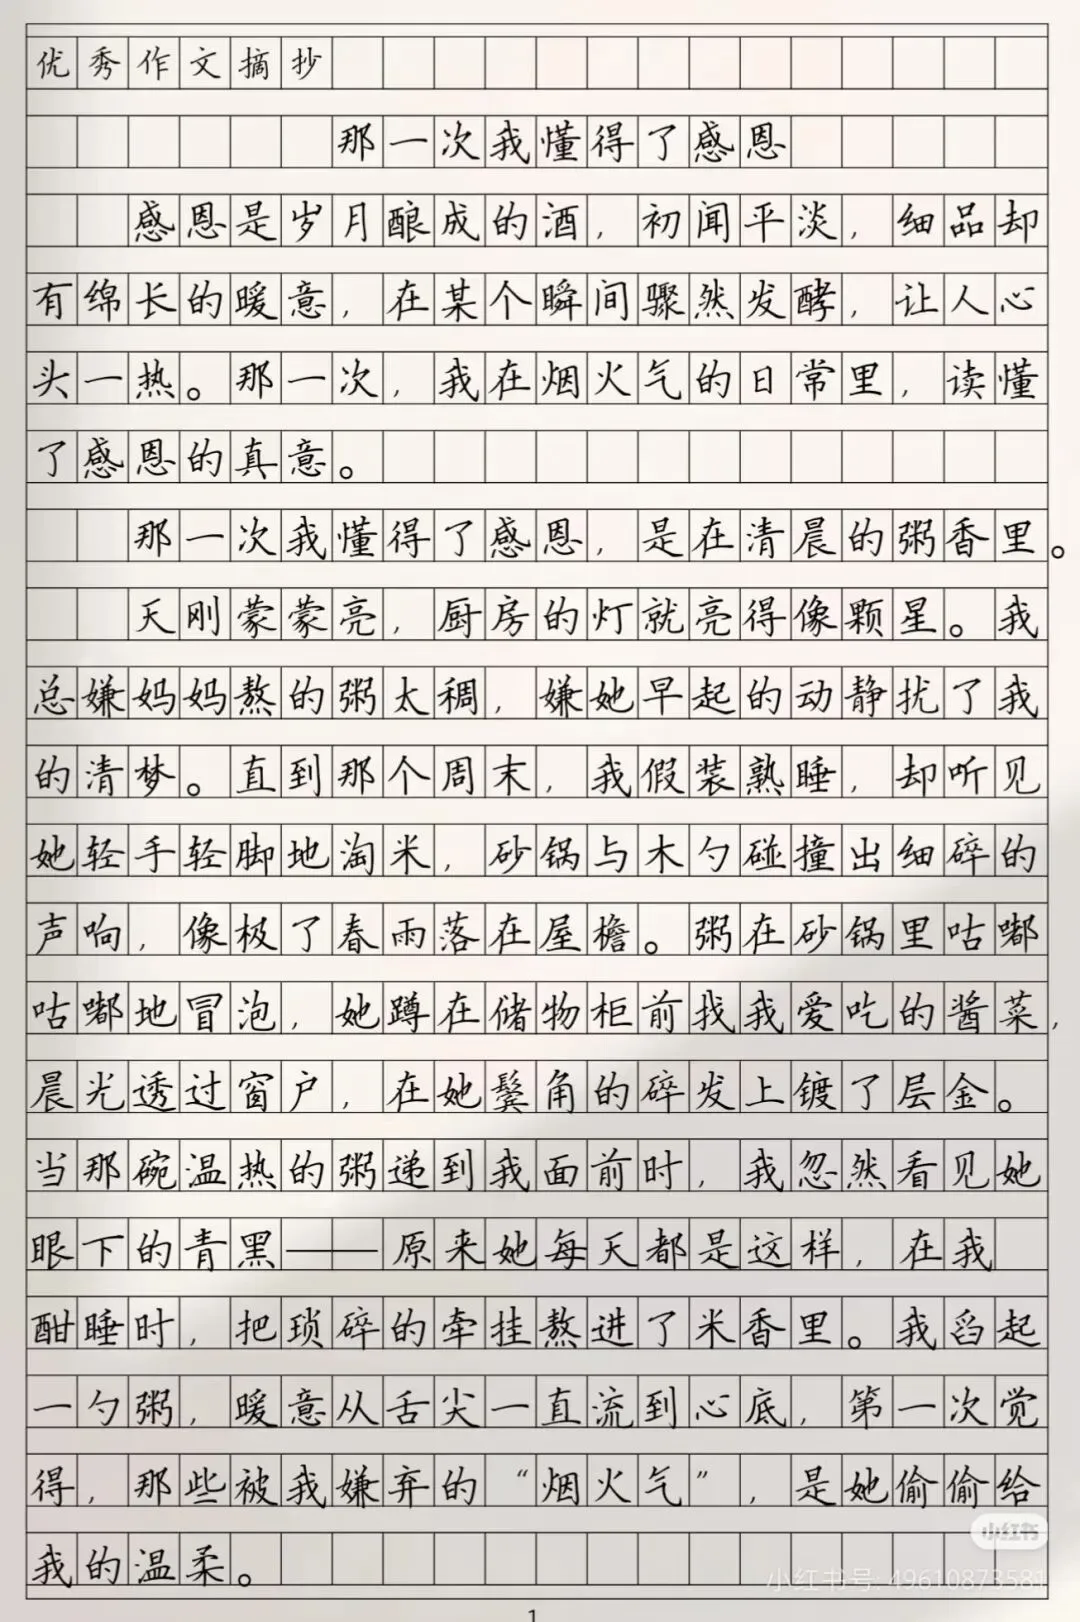 优秀作文摘抄
那一次我懂得了感恩
感恩是岁月酿成的酒，初闻平淡，细品却
有绵长的暖意，在某个瞬间骤然发酵，让人心
头一热。那一次，我在烟火气的日常里，读懂
了感恩的真意。
那一次我懂得了感恩，是在清晨的粥香里。
天刚蒙蒙亮，厨房的灯就亮得像颗星。我
总嫌妈妈熬的粥太稠，嫌她早起的动静扰了我
的清梦。直到那个周末，我假装熟睡，却听见
她轻手轻脚地淘米，砂锅与木勺碰撞出细碎的
声响，像极了春雨落在屋檐。粥在砂锅里咕嘟
咕嘟地冒泡，她蹲在储物柜前找我爱吃的酱菜，
晨光透过窗户，在她鬓角的碎发上镀了层金。
当那碗温热的粥递到我面前时，我忽然看见她
眼下的青黑——原来她每天都是这样，在我
酣睡时，把琐碎的牵挂熬进了米香里。我舀起
一勺粥，暖意从舌尖一直流到心底，第一次觉
得，那些被我嫌弃的“烟火气”，是她偷偷给
我的温柔。
小红书
小红书号: 49610873581
1